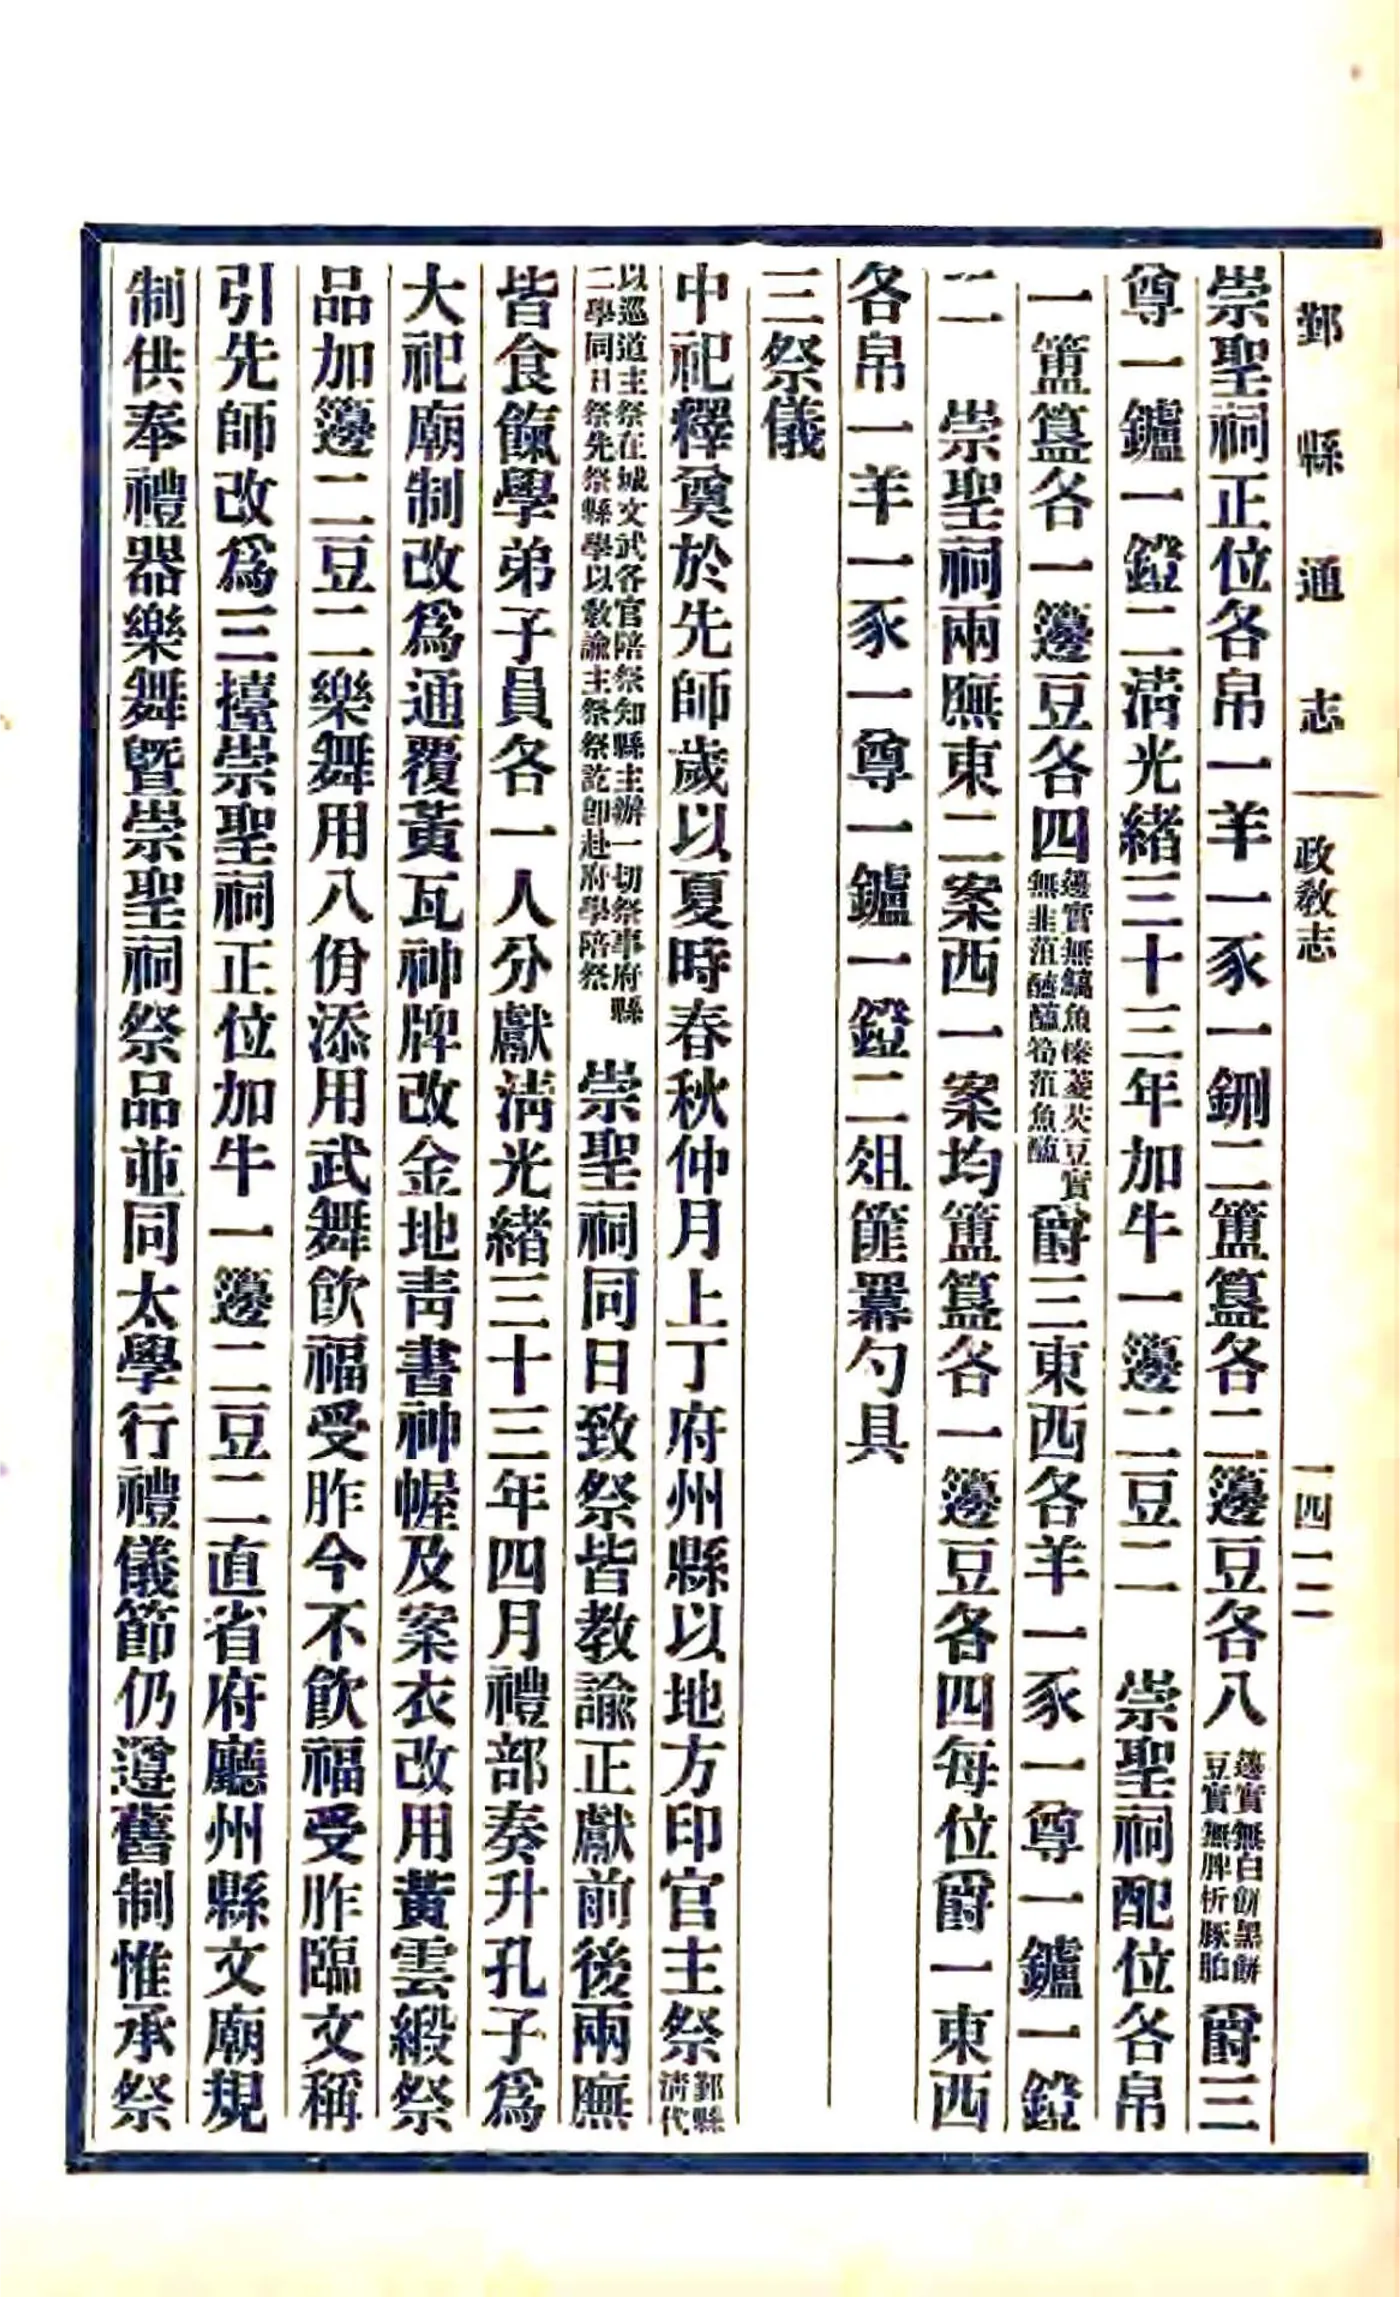 鄞縣通志 政敎志 一四一二
崇聖祠正位各帛一羊一豕一鉶二簠簋各二籩豆各八籩實無白餅黑餅豆實無脾析豚胉爵三
尊一鑪一鐙二淸光緖三十三年加牛一籩二豆二 崇聖祠配位各帛
一簠簋各一籩豆各四籩實無鱐魚榛菱芡豆實無韭菹醓醢筍菹魚醢爵三東西各羊一豕一尊一鑪一鐙
二 崇聖祠兩廡東二案西一案均簠簋各一籩豆各四每位爵一東西
各帛一羊一豕一尊一鑪一鐙二俎篚羃勺具
三祭儀
中祀釋奠於先師歲以夏時春秋仲月上丁府州縣以地方印官主祭鄞縣淸代
以巡道主祭在城文武各官陪祭知縣主辦一切祭事府縣二學同日祭先祭縣學以敎諭主祭祭訖卽赴府學陪祭 崇聖祠同日致祭皆敎諭正獻前後兩廡
皆食餼學弟子員各一人分獻淸光緖三十三年四月禮部奏升孔子爲
大祀廟制改爲通覆黃瓦神牌改金地靑書神幄及案衣改用黃雲緞祭
品加籩二豆二樂舞用八佾添用武舞飮福受胙今不飮福受胙臨文稱
引先師改爲三擡崇聖祠正位加牛一籩二豆二直省府廳州縣文廟規
制供奉禮器樂舞曁崇聖祠祭品並同太學行禮儀節仍遵舊制惟承祭